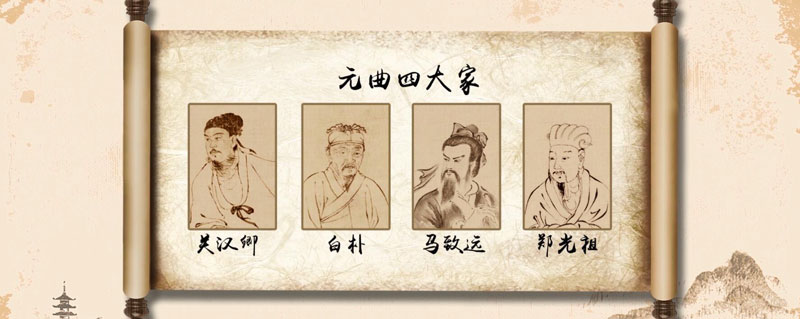 元曲四大家
关汉卿
白朴
马致远
郑光祖